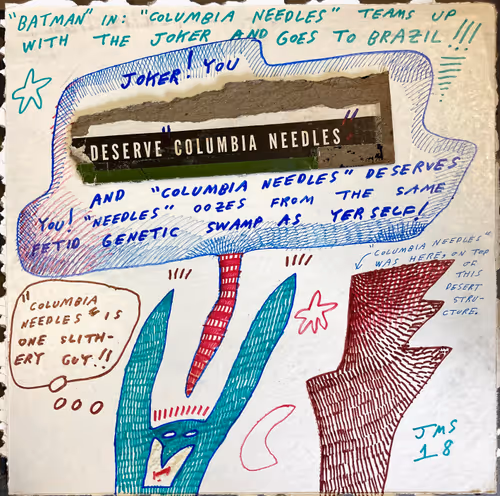 "BATMAN" IN: "COLUMBIA NEEDLES" TEAMS UP
WITH THE JOKER AND GOES TO BRAZIL!!!
JOKER! YOU
DESERVE "COLUMBIA NEEDLES"
AND "COLUMBIA NEEDLES" DESERVES
YOU! "NEEDLES" OOZES FROM THE SAME
FETID GENETIC SWAMP AS YERSELF!
"COLUMBIA NEEDLES"
WAS HERE, ON TOP
OF
THIS
DESERT
STRU-
CTURE.
"COLUMBIA
NEEDLES" IS
ONE SLITH-
ERY GUY!!
JMS
18